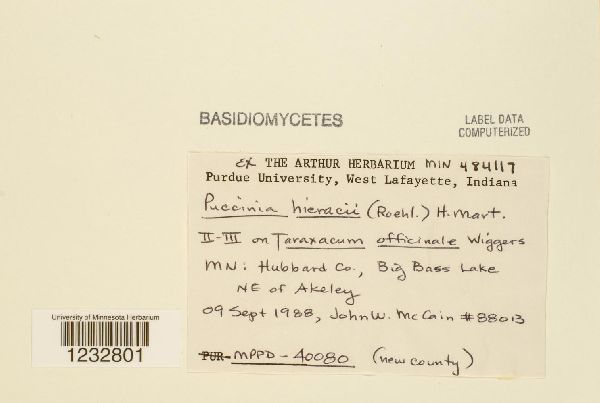 BASIDIOMYCETES
LABEL DATA
COMPUTERIZED
ex THE ARTHUR HERBARIUM MIN 484117
Purdue University, West Lafayette, Indiana
Puccinia hieracii (Roehl.) H. Mart.
II-III on Taraxacum officinale Wiggers
MN: Hubbard Co., Big Bass Lake
NE of Akeley
09 Sept 1988, John W. McCain #88013
PUR-MPPD-40080 (new county)
University of Minnesota Herbarium
1232801